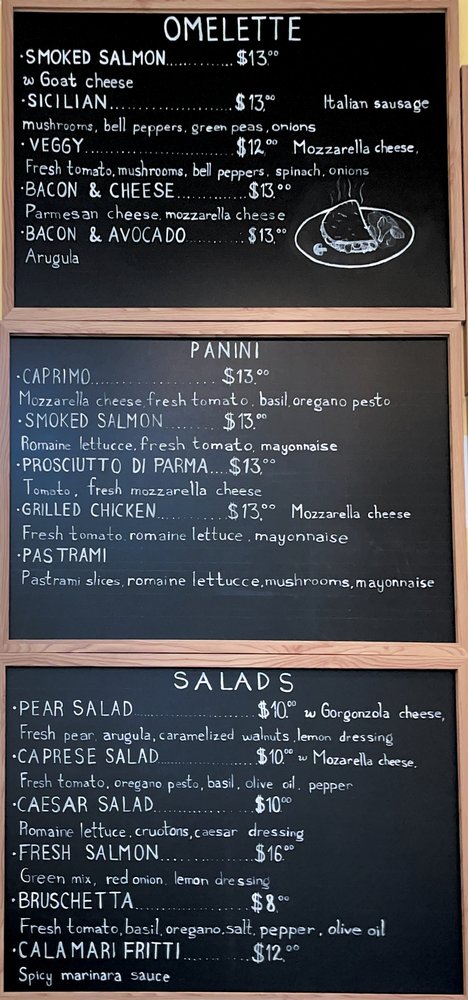 OMELETTE
·SMOKED SALMON............. $13.00
w Goat cheese
·SICILIAN....................$13.00 Italian sausage
mushrooms, bell peppers, green peas, onions
·VEGGY.......................$12.00 Mozzarella cheese,
Fresh tomato, mushrooms, bell peppers, spinach, onions
·BACON & CHEESE............$13.00
Parmesan cheese, mozzarella cheese
·BACON & AVOCADO..........$13.00
Arugula
PANINI
·CAPRIMO.................... $13.00
Mozzarella cheese, fresh tomato, basil, oregano pesto
·SMOKED SALMON......... $13.00
Romaine lettucce, fresh tomato, mayonnaise
·PROSCIUTTO DI PARMA....$13.00
Tomato, fresh mozzarella cheese
·GRILLED CHICKEN............$13.00 Mozzarella cheese
Fresh tomato, romaine lettuce, mayonnaise
·PASTRAMI
Pastrami slices, romaine lettucce, mushrooms, mayonnaise
SALADS
·PEAR SALAD....................$10.00 w Gorgonzola cheese,
Fresh pear, arugula, caramelized walnuts, lemon dressing
·CAPRESE SALAD................$10.00 w Mozarella cheese,
Fresh tomato, oregano pesto, basil, olive oil, pepper
·CAESAR SALAD.................$10.00
Romaine lettuce, cruotons, caesar dressing
·FRESH SALMON................$16.00
Green mix, red onion, lemon dressing
·BRUSCHETTA...................$8.00
Fresh tomato, basil, oregano, salt, pepper, olive oil
·CALAMARI FRITTI............$12.00
Spicy marinara sauce